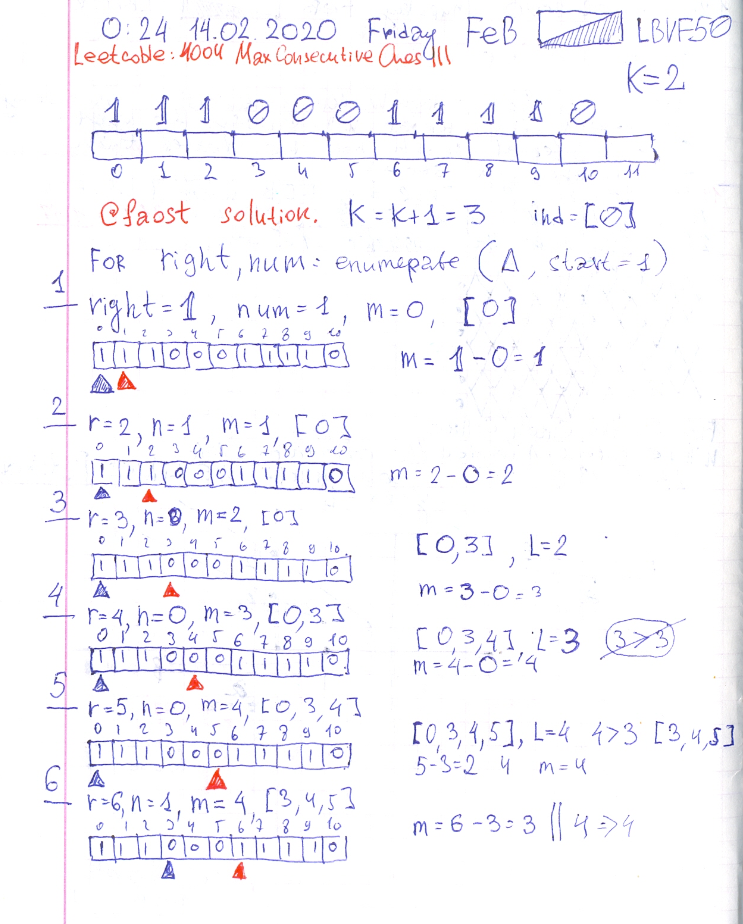 0:24 14.02.2020 Friday FeB LBVF50
Leetcode: 1004 Max Consecutive Ones III
K=2
1 1 1 0 0 0 1 1 1 1 0
0 1 2 3 4 5 6 7 8 9 10 11
@faost solution. K=K+1=3 ind=[0]
FOR right, num = enumepate (A, start=1)
1
right=1, num=1, m=0, [0]
0 1 2 3 4 5 6 7 8 9 10
1 1 1 0 0 0 1 1 1 1 0
m= 1-0=1
2
r=2, n=1, m=1, [0]
0 1 2 3 4 5 6 7 8 9 10
1 1 1 0 0 0 1 1 1 1 0
m=2-0=2
3
r=3, n=0, m=2, [0]
0 1 2 3 4 5 6 7 8 9 10
1 1 1 0 0 0 1 1 1 1 0
[0,3], L=2
m=3-0=3
4
r=4, n=0, m=3, [0,3]
0 1 2 3 4 5 6 7 8 9 10
1 1 1 0 0 0 1 1 1 1 0
[0,3,4], L=3 3>3
m=4-0=4
5
r=5, n=0, m=4, [0,3,4]
0 1 2 3 4 5 6 7 8 9 10
1 1 1 0 0 0 1 1 1 1 0
[0,3,4,5], L=4 4>3 [3,4,5]
5-3=2 4 m=4
6
r=6, n=1, m=4, [3,4,5]
0 1 2 3 4 5 6 7 8 9 10
1 1 1 0 0 0 1 1 1 1 0
m=6-3=3 || 4=>4